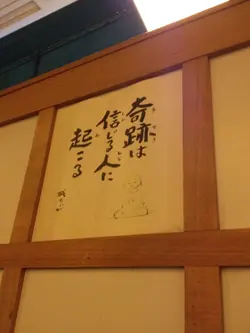 奇跡は
信じる人に
起こる